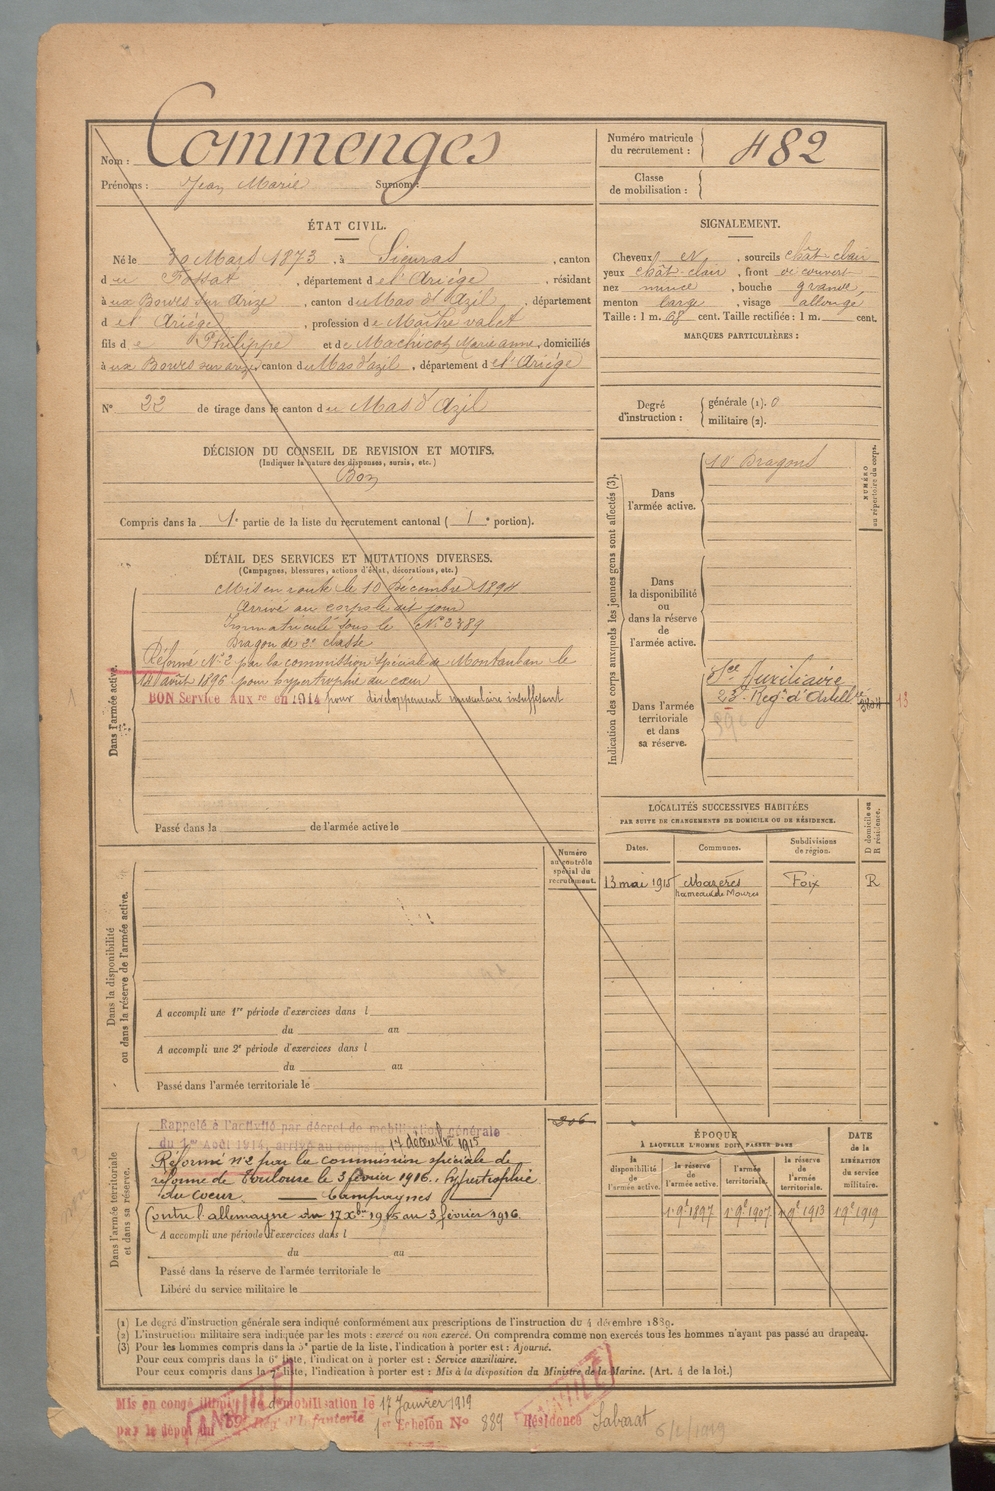 Nom : Commenges
Prénoms : Jean Marie Surnom :
Numéro matricule
du recrutement : 482
Classe
de mobilisation :
ÉTAT CIVIL.
Né le 30 Mars 1873, à Sieuras, canton
du Fossat, département de l'Ariége, résidant
aux Bordes sur Arize, canton du Mas d'Azil, département
de l' Ariége, profession de Maître valet
fils de Philippe et de Machicot Marie anne, domiciliés
aux Bordes sur arize canton du Mas d'azil, département de l'Ariége
N° 22 de tirage dans le canton du Mas d'Azil
SIGNALEMENT.
Cheveux et, sourcils chât-clair
yeux chât-clair, front découvert
nez mince, bouche grande,
menton large, visage allongé
Taille : 1 m. 68 cent. Taille rectifiée : 1 m. cent.
MARQUES PARTICULIÈRES :
Degré
d'instruction :
générale (1). 0
militaire (2).
DÉCISION DU CONSEIL DE REVISION ET MOTIFS.
(Indiquer la nature des dispenses, sursis, etc.)
Bon
Compris dans la 1e partie de la liste du recrutement cantonal ( 1e portion).
DÉTAIL DES SERVICES ET MUTATIONS DIVERSES.
(Campagnes, blessures, actions d'éclat, décorations, etc.)
Dans l'armée active.
Mis en route le 10 Décembre 1894
Arrivé au corps le dit jour
Immatriculé sous le N° 2789
Dragon de 2e classe
Réformé N° 2 par la commission spéciale de Montauban le
14 août 1896 pour hypertrophie au cœur
BON Service Aux re en 1914 pour développement musculaire insuffisant
Passé dans la de l'armée active le
Indication des corps auxquels les jeunes gens sont affectés (3).
NUMÉRO
au répertoire du corps.
Dans
l'armée active.
10e Dragons
Dans
la disponibilité
ou
dans la réserve
de
l'armée active.
Dans l'armée
territoriale
et dans
sa réserve.
Sce Auxiliaire
23e Reg.t d'Artillie
13
LOCALITÉS SUCCESSIVES HABITÉES
PAR SUITE DE CHANGEMENTS DE DOMICILE OU DE RÉSIDENCE.
D domicile ou
R résidence.
Dates. Communes. Subdivisions
de région.
13 mai 1915 Mazerès Foix R
hameau de Mouris
Dans la disponibilité
ou dans la réserve de l'armée active.
Numéro
au contrôle
spécial du
recrutement.
A accompli une 1re période d'exercices dans l
du au
A accompli une 2e période d'exercices dans l
du au
Passé dans l'armée territoriale le
Dans l'armée territoriale
et dans sa réserve.
306
Rappelé à l'activité par décret de mobilisation générale
du 1er Août 1914, arrivé au corps le 17 décembre 1915
Réformé n°2 par la commission spéciale de
réforme de Toulouse le 3 février 1916. hypertrophie
du coeur Campagnes
Contre l'allemagne du 17 Xbre 1915 au 3 février 1916.
A accompli une période d'exercices dans l
du au
Passé dans la réserve de l'armée territoriale le
Libéré du service militaire le
ÉPOQUE
À LAQUELLE L'HOMME DOIT PASSER DANS
DATE
de la
LIBÉRATION
du service
militaire.
la
disponibilité
de
l'armée active.
la réserve
de
l'armée active.
l'armée
territoriale.
la réserve
de
l'armée
territoriale.
1 9e 1897 1 9e 1907 1 9e 1913 1 9e 1919
(1) Le degré d'instruction générale sera indiqué conformément aux prescriptions de l'instruction du 4 décembre 1889.
(2) L'instruction militaire sera indiquée par les mots : exercé ou non exercé. On comprendra comme non exercés tous les hommes n'ayant pas passé au drapeau.
(3) Pour les hommes compris dans la 5e partie de la liste, l'indication à porter est : Ajourné.
Pour ceux compris dans la 6e liste, l'indication à porter est : Service auxiliaire.
Pour ceux compris dans la 7e liste, l'indication à porter est : Mis à la disposition du Ministre de la Marine. (Art. 4 de la loi.)
Mis en congé illimité de démobilisation le 17 Janvier 1919
par le dépôt du 59e Rég. d'Infanterie 1er Echelon N° 889 Résidence Sabarat
ANNULÉ
ANNULÉ